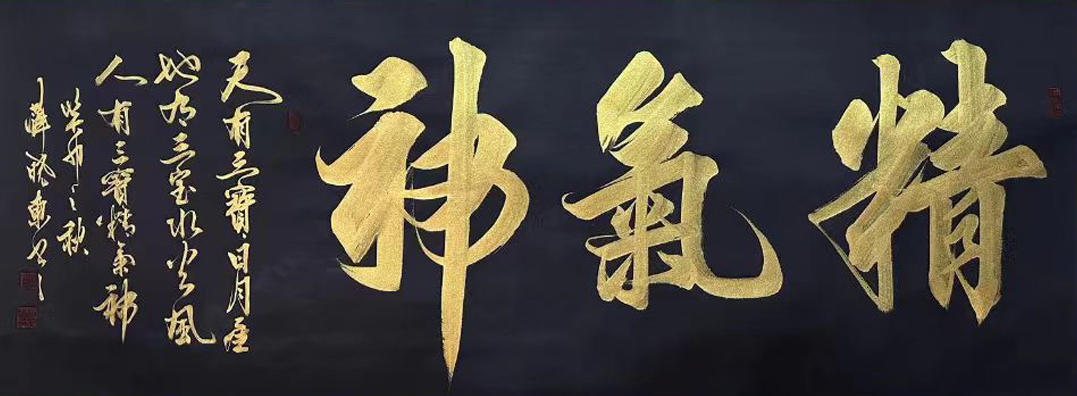 精氣神
天有三寶日月星
地有三宝水火風
人有三寶精氣神
癸卯之秋